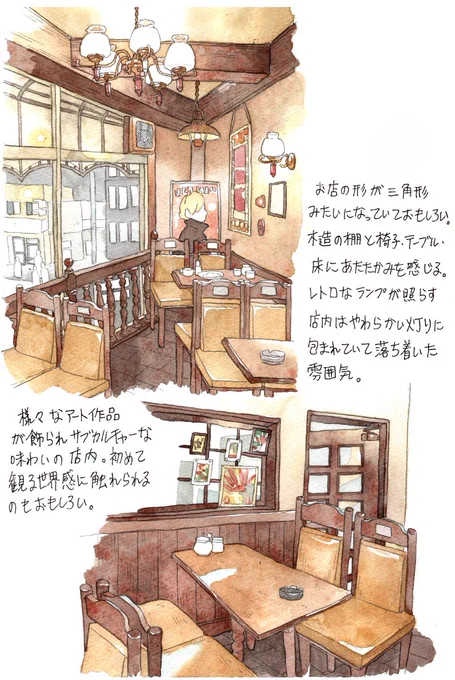 お店の形が三角形
みたいになっていておもしろい。
木造の棚と椅子・テーブル・
床にあたたかみを感じる。
レトロなランプが照らす
店内はやわらかい灯りに
包まれていて落ち着いた
雰囲気。
様々なアート作品
が飾られサブカルチャーな
味わいの店内。初めて
観る世界感に触れられる
のもおもしろい。